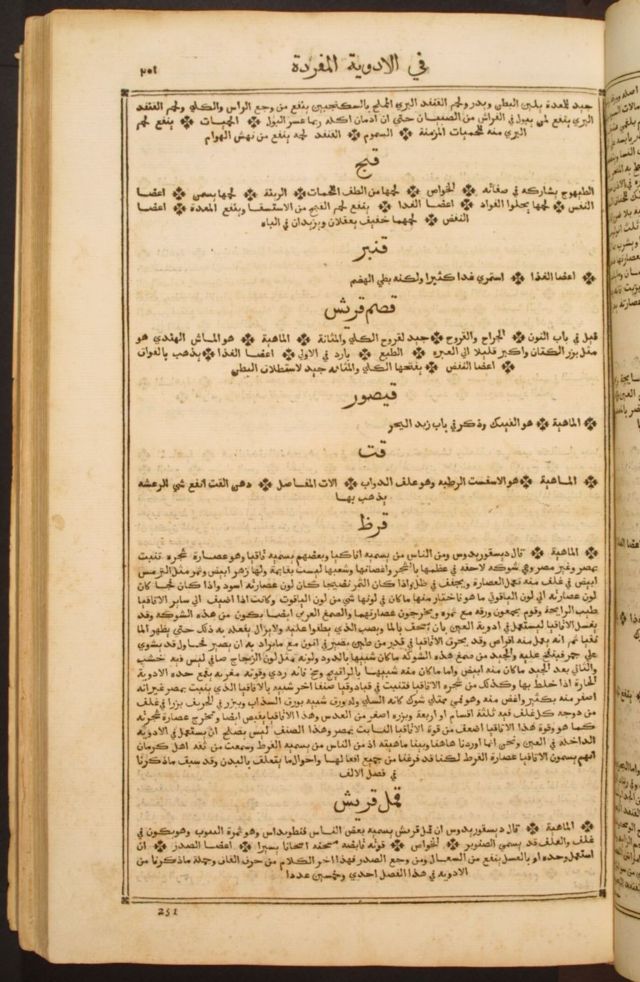 في الادوية المفردة
٢٥١
جيد للمعدة يلين البطن ويدر ولحم القنفد البري المملح بالسكنجبين ينفع من وجع الراس والكلي ولحم القنفد
البري ينفع لمن يبول في الفراش من الصبيان حتي ان ادمان اكله ربما عسر البول ❖ الحميات ❖ ينفع لحم
البري منه للحميات المزمنة ❖ السموم ❖ القنفد لحمه ينفع من نهش الهوام
قبج
الطيهوج يشاركه في صفاته ❖ الخواص ❖ لحمها من الطف اللحمات ❖ الزينة ❖ لحمها يسمن ❖ اعضا
النفس ❖ لحمها يجلوا الفواد ❖ اعضا الغدا ❖ ينفع لحم القبج من الاستسقا وينفع المعدة ❖ اعضا
النفض ❖ لحمهما خفيف يعقلان ويزيدان في الباه
قنبر
❖ اعضا الغذا ❖ استمري غدا كثيرا ولكنه بطي الهضم
قصم قريش
قيل في باب النون ❖ الجراح والقروح ❖ جيد لقروح الكلي والمثانة ❖ الماهية ❖ هو الماش الهندي هو
مثل بزر الكتان واكبر قليلا الي الغبرة ❖ الطبع ❖ بارد في الاولي ❖ اعضا الغذا ❖ يذهب بالفواق
❖ اعضا النفض ❖ ينقيها الكلي والمثانه جيد لاستطلاق البطن
قيصور
❖ الماهية ❖ هو الفينك وذكر في باب زبد البحر
قت
❖ الماهية ❖ هو الاسفست الرطبه وهو علف الدواب ❖ الات المفاصل ❖ دهن القت انفع شي للرعشه
يذهب بها
قرظ
❖ الماهية ❖ قال ديسقوريدوس ومن الناس من يسميه اقاكيا وبعضهم يسميه قاقيا وهو عصارة شجرة تنبت
بمصر وغير مصر وهي شوكه لاحقه في عظمها بالشجر واغصانها وشعبها ليست بقايمة ولها زهر ابيض وثمر مثل الترمس
ابيض في غلف منه تعمل العصارة ويجفف في ظل واذا كان الثمر نضيجا كان لون عصارته اسود واذا كان فجا كان
لون عصارته الي لون الياقوتي ما هو فاختيار منها ماكان في لونها شي من لون الياقوت وكانت اذا اضيف الي ساير الاقاقيا
طيب الرايحة وقوم يجمعون ورقه مع ثمره ويخرجون عصارتهما والصمغ العربي ايضا يكون من هذه الشوكه وقد
يغسل الاقاقيا ليستعمل في ادوية العين بان يسحق بالما ويصب الذي يطفوا عليه ولا يزال يفعل به ذلك حتي يظهر الما
نقيا ثم انه يعمل منه اقراص وقد يحرق الاقاقيا في قدر من طين يصير في اتون مع مايراد به ان يصير فخارا وقد يشوي
علي جمر فينفخ عليه والجيد من صمغ هذه الشوكه ماكان شبيها بالدود ولونه مثل لون الزجاج صافي ليس فيه خشب
والثاني بعد الجيد ماكان منه ابيض واما ماكان منه شبيها بالراتينج وسخ فانه ردي وقوته مغريه يقمع حده الادوية
الحارة اذا خلط بها وكذلك من شجره الاقاقيا فتنبت في قبادوقيا صنفا اخر شبيه بالاقاقيا الذي ينبت بمصر غير انه
اصغر منه بكثير واغض منه وهو قمي ممتلي شوك كانه السلي وله ورق شبيه بورق السداب ويبزر في الخريف بزرا في غلف
من دوجه كل غلف فيه ثلثة اقسام او اربعة وبزره اصغر من العدس وهذا الاقاقيا يقبض ايضا وتخرج عصارة شجرته
كما هو وقوة هذا الاقاقيا اضعف من قوة الاقاقيا النابت بمصر وهذا الصنف ليس يصلح ان يستعمل في الادويه
الداخله في العين ونحن انما اوردنا هاهنا وبينا ماهيته اذ من الناس من يسميه القرظ وسمعت من ثقه اهل كرمان
انهم يسمون الاقاقيا عصارة القرظ لكنا قد فرغنا من جميع افعالها واحوال ما يتعلق بالبدن وقد سبق ماذكرنا
في فصل الالف
قمل قريش
❖ الماهية ❖ قال ديسقوريدوس ان قمل قريش يسميه بعض الناس فنطويداس وهو ثمرة التنوب وهو يكون في
غلف والغلف قد يسمي الصنوبر ❖ الخواص ❖ قوته قابضه مسخنه اسخانا يسيرا ❖ اعضا الصدر ❖ ان
استعمل وحده او بالعسل ينفع من السعال ومن وجع الصدر فهذا اخر الكلام من حرف القاف وجملة ماذكرنا من
الادويه في هذا الفصل احدي وخمسين عددا
251